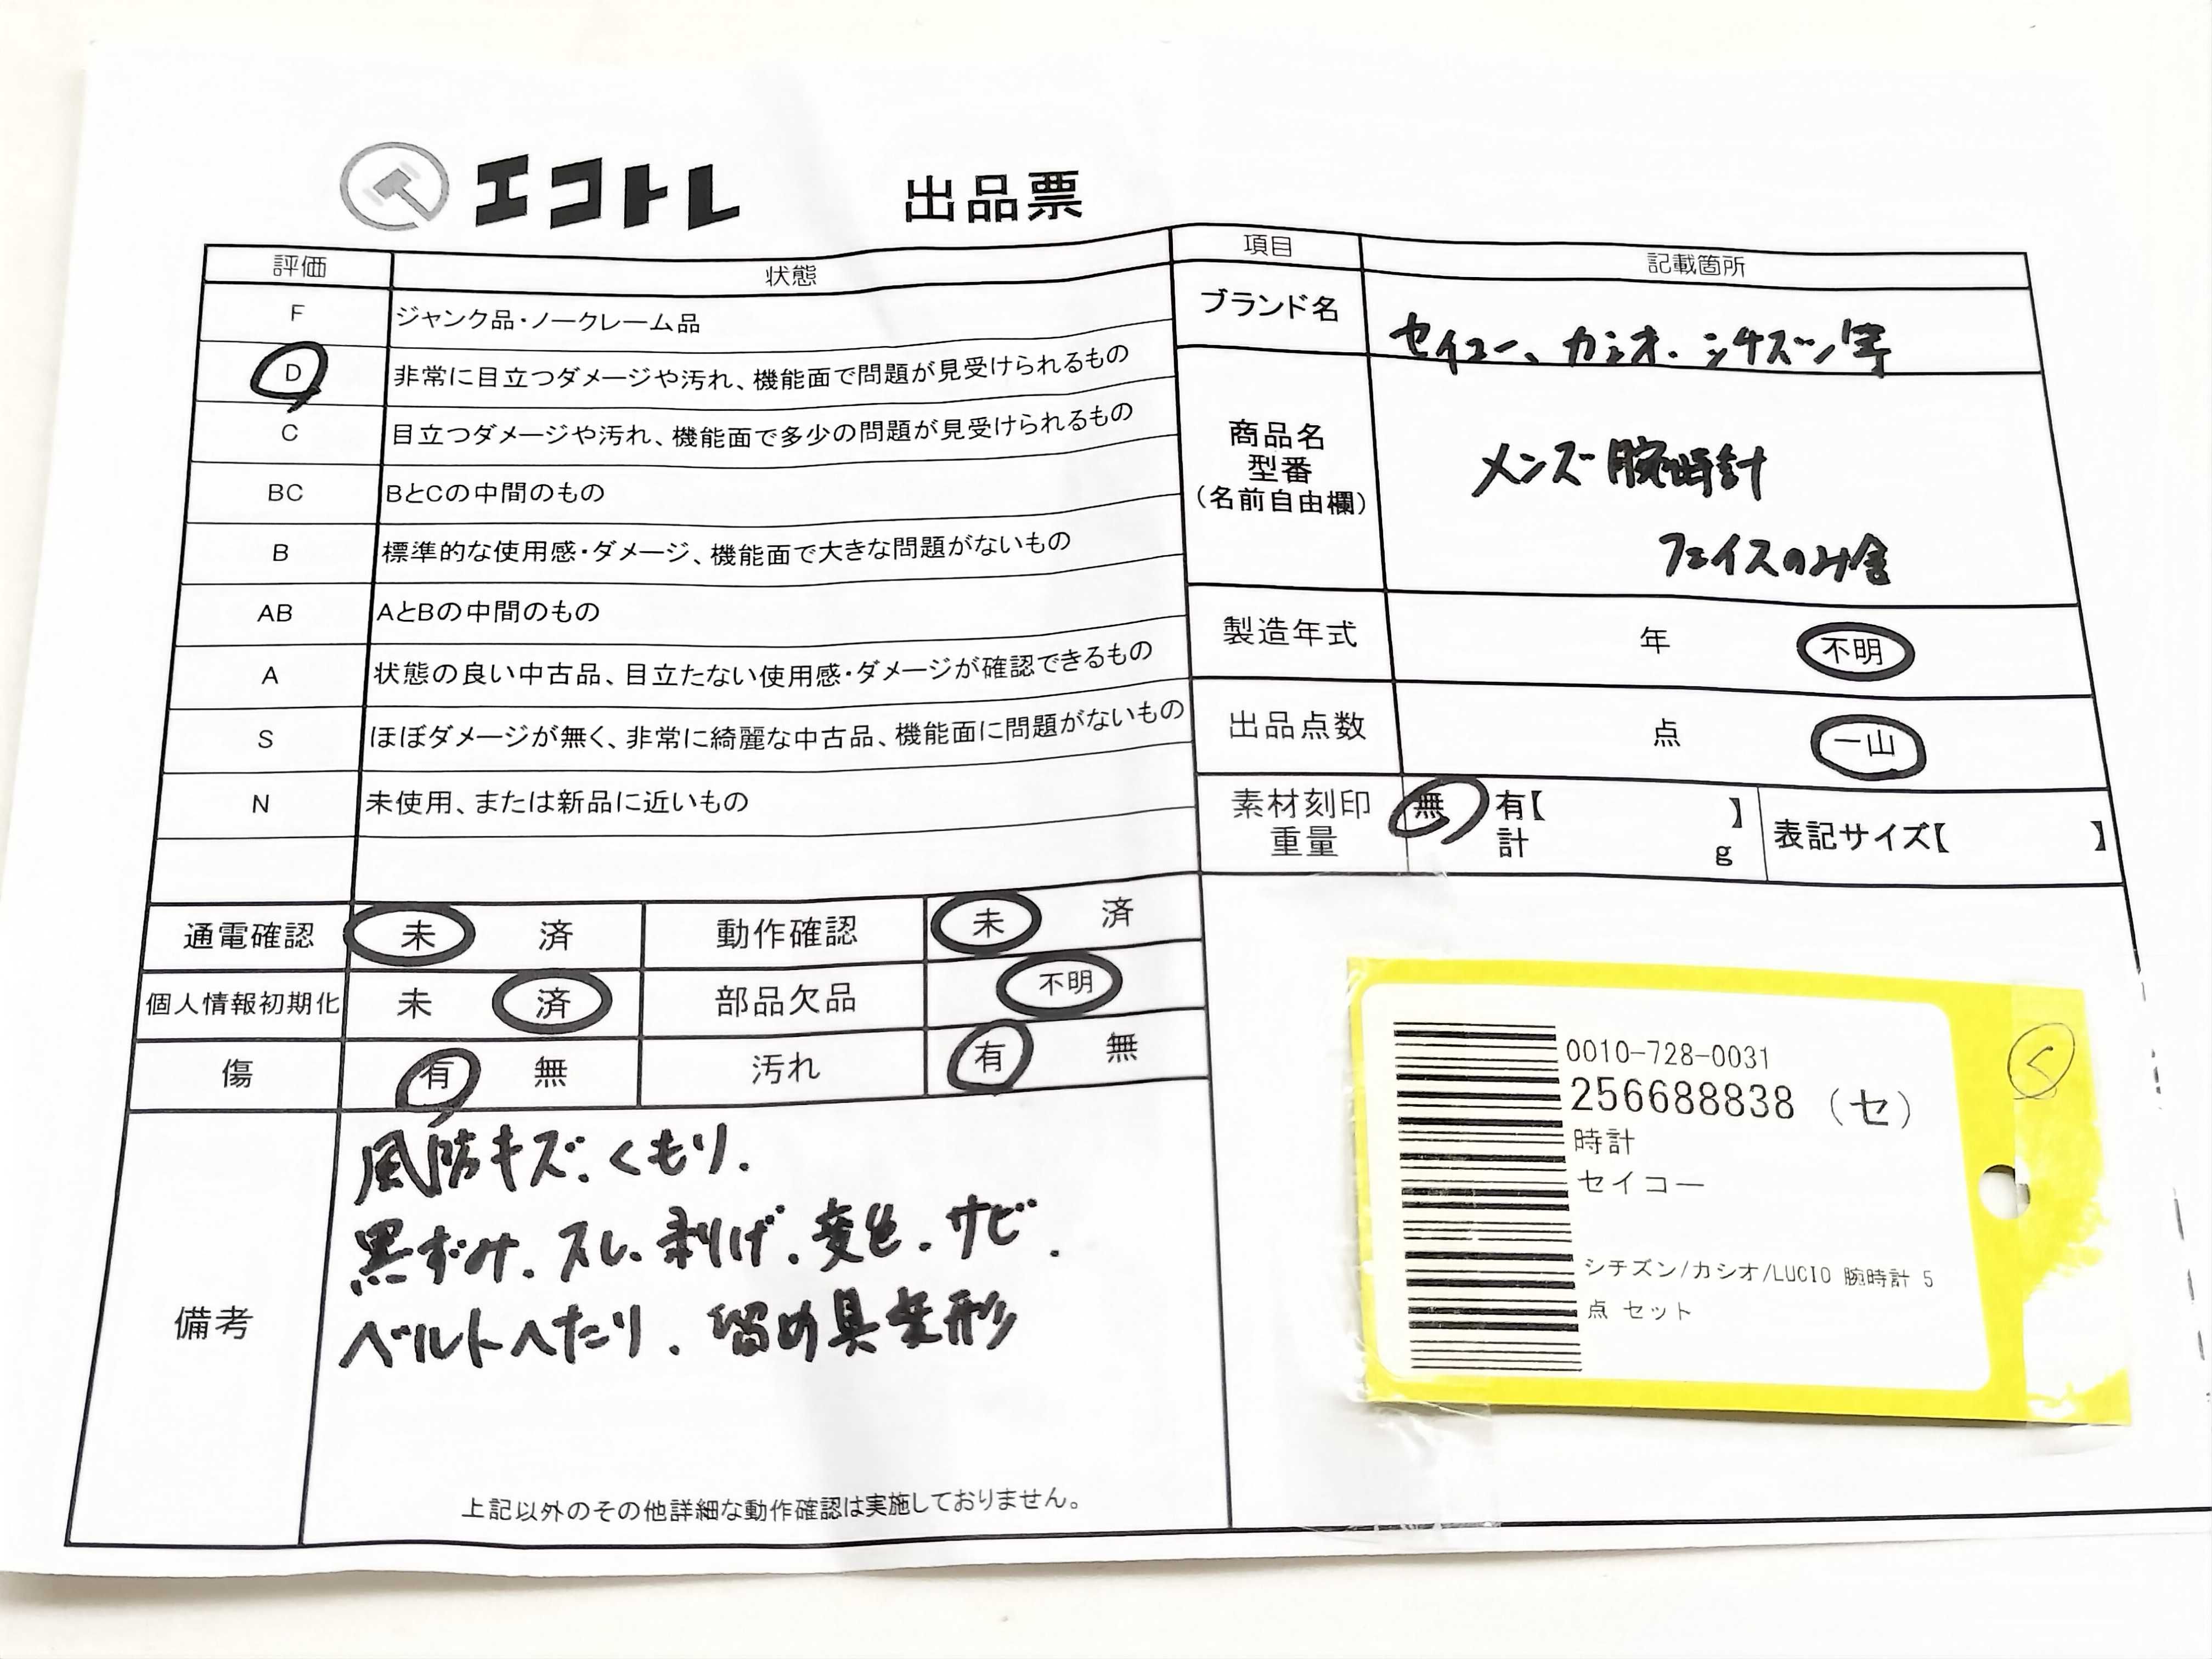 エコトレ 出品票
評価 状態
F ジャンク品・ノークレーム品
D 非常に目立つダメージや汚れ、機能面で問題が見受けられるもの
C 目立つダメージや汚れ、機能面で多少の問題が見受けられるもの
BC BとCの中間のもの
B 標準的な使用感・ダメージ、機能面で大きな問題がないもの
AB AとBの中間のもの
A 状態の良い中古品、目立たない使用感・ダメージが確認できるもの
S ほぼダメージが無く、非常に綺麗な中古品、機能面に問題がないもの
N 未使用、または新品に近いもの
通電確認 未 済 動作確認 未 済
個人情報初期化 未 済 部品欠品 不明
傷 有 無 汚れ 有 無
備考
風防キズ、くもり、
黒ずみ、スレ、剥げ、変色、サビ、
ベルトへたり、留め具変形
上記以外のその他詳細な動作確認は実施しておりません。
項目 記載箇所
ブランド名 セイコー、カシオ、シチズン等
商品名
型番
(名前自由欄)
メンズ腕時計
フェイスのみ含
製造年式 年 不明
出品点数 点 一山
素材刻印 無 有【 】
重量 計 g
表記サイズ【 】
0010-728-0031
256688838 (セ)
時計
セイコー
シチズン/カシオ/LUCIO 腕時計 5
点 セット
く